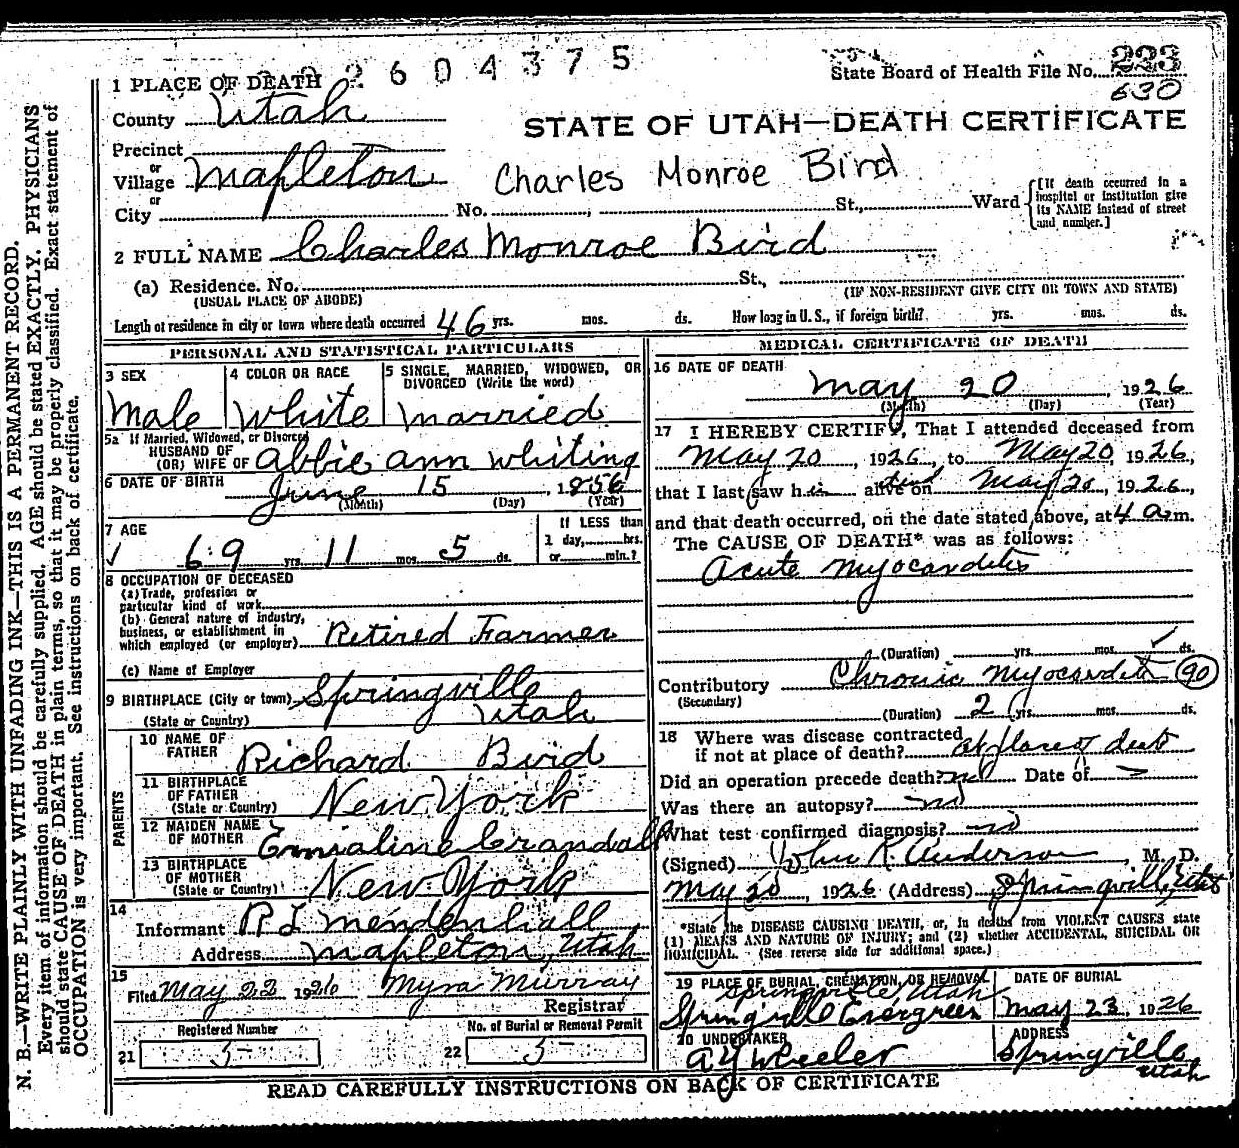 2604375
State Board of Health File No. 223
630
1 PLACE OF DEATH
County Utah
STATE OF UTAH—DEATH CERTIFICATE
Precinct
or
Village Mapleton
Charles Monroe Bird
or
City No. ; St., Ward
[If death occurred in a hospital or institution give its NAME instead of street and number.]
2 FULL NAME Charles Monroe Bird
(a) Residence. No. St.,
(USUAL PLACE OF ABODE) (IF NON-RESIDENT GIVE CITY OR TOWN AND STATE)
Length of residence in city or town where death occurred 46 yrs. mos. ds. How long in U. S., if foreign birth? yrs. mos. ds.
PERSONAL AND STATISTICAL PARTICULARS
3 SEX
Male
4 COLOR OR RACE
White
5 SINGLE, MARRIED, WIDOWED, OR
DIVORCED (Write the word)
Married
5a If Married, Widowed, or Divorced
HUSBAND OF
(OR) WIFE OF Abbie Ann Whiting
6 DATE OF BIRTH June 15, 1856
(Month) (Day) (Year)
7 AGE
69 yrs. 11 mos. 5 ds.
If LESS than
1 day, hrs.
or min.?
8 OCCUPATION OF DECEASED
(a) Trade, profession or
particular kind of work
(b) General nature of industry,
business, or establishment in
which employed (or employer) Retired Farmer
(c) Name of Employer
9 BIRTHPLACE (City or town) Springville
(State or Country) Utah
PARENTS
10 NAME OF
FATHER Richard Bird
11 BIRTHPLACE
OF FATHER
(State or Country) New York
12 MAIDEN NAME
OF MOTHER Emialine Crandall
13 BIRTHPLACE
OF MOTHER
(State or Country) New York
14
Informant R L Mendenhall
Address Mapleton, Utah
15
Filed May 22 1926 Myra Murray
Registrar
Registered Number
21 5
No. of Burial or Removal Permit
22 5
MEDICAL CERTIFICATE OF DEATH
16 DATE OF DEATH
May 20, 1926
(Month) (Day) (Year)
17 I HEREBY CERTIFY, That I attended deceased from
May 20, 1926, to May 20, 1926,
that I last saw him alive on dead May 20, 1926,
and that death occurred, on the date stated above, at 4 a.m.
The CAUSE OF DEATH* was as follows:
Acute Myocarditis
(Duration) yrs. mos. ds.
Contributory Chronic Myocarditis 90
(Secondary)
(Duration) 2 yrs. mos. ds.
18 Where was disease contracted
if not at place of death? at place of death
Did an operation precede death? no Date of
Was there an autopsy? no
What test confirmed diagnosis? no
(Signed) John R. Anderson, M. D.
May 20, 1926 (Address) Springville, Utah
*State the DISEASE CAUSING DEATH, or, in deaths from VIOLENT CAUSES state
(1) MEANS AND NATURE OF INJURY; and (2) whether ACCIDENTAL, SUICIDAL OR
HOMICIDAL. (See reverse side for additional space.)
19 PLACE OF BURIAL, CREMATION, OR REMOVAL
Springville, Utah
Springville Evergreen
DATE OF BURIAL
May 23, 1926
20 UNDERTAKER
A Y Wheeler
ADDRESS
Springville
Utah
READ CAREFULLY INSTRUCTIONS ON BACK OF CERTIFICATE
N. B.—WRITE PLAINLY WITH UNFADING INK—THIS IS A PERMANENT RECORD.
Every item of information should be carefully supplied. AGE should be stated EXACTLY. PHYSICIANS
should state CAUSE OF DEATH in plain terms, so that it may be properly classified. Exact statement of
OCCUPATION is very important. See instructions on back of certificate.